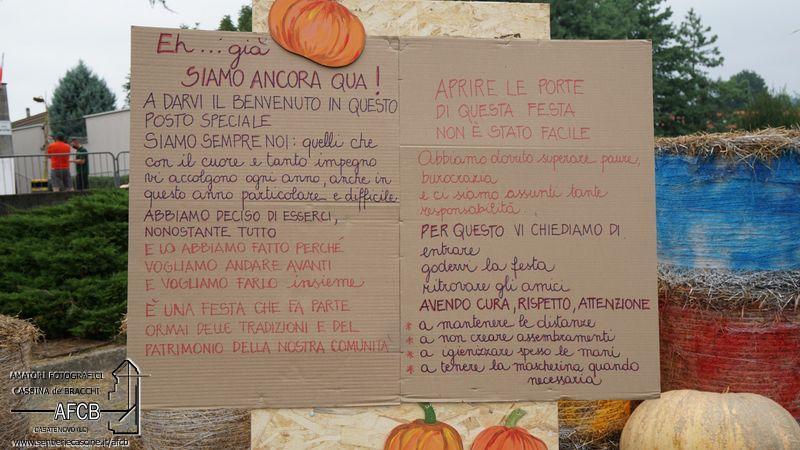 Eh... già
SIAMO ANCORA QUA!
A DARVI IL BENVENUTO IN QUESTO
POSTO SPECIALE
SIAMO SEMPRE NOI: quelli che
con il cuore e tanto impegno
vi accolgono ogni anno, anche in
questo anno particolare e difficile.
ABBIAMO DECISO DI ESSERCI,
NONOSTANTE TUTTO
E LO ABBIAMO FATTO PERCHÉ
VOGLIAMO ANDARE AVANTI
E VOGLIAMO FARLO insieme
È UNA FESTA CHE FA PARTE
ORMAI DELLE TRADIZIONI E DEL
PATRIMONIO DELLA NOSTRA COMUNITA'
APRIRE LE PORTE
DI QUESTA FESTA
NON È STATO FACILE
Abbiamo dovuto superare paure,
burocrazia
e ci siamo assunti tante
responsabilità.
PER QUESTO VI CHIEDIAMO DI
entrare
godervi la festa
ritrovare gli amici
AVENDO CURA, RISPETTO, ATTENZIONE
* a mantenere le distanze
* a non creare assembramenti
* a igienizzare spesso le mani
* a tenere la mascherina quando
necessaria
AMATORI FOTOGRAFICI
CASSINA de' BRACCHI
AFCB
CASATENOVO (LC)
www.sentieriecascine.it/afcb